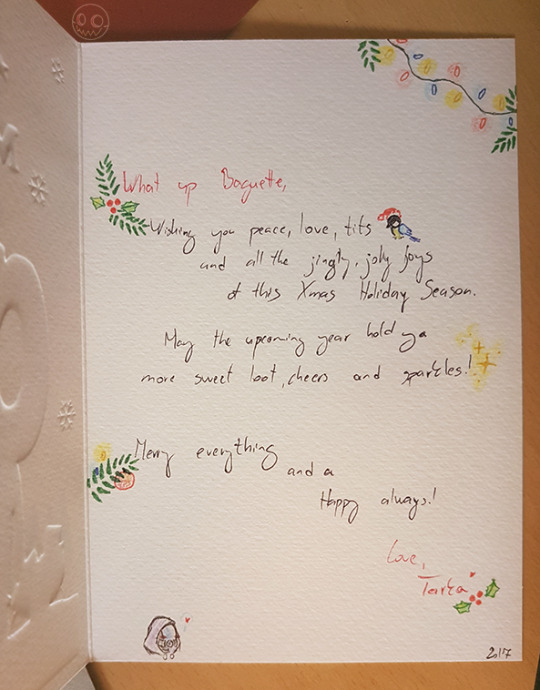 What up Baguette,
Wishing you peace, love, tits
and all the jingly, jolly joys
of this Xmas Holiday Season.
May the upcoming year hold ya
more sweet loot, cheers and sparkles!
Merry everything
and a
Happy always!
Love,
Tarka
2017